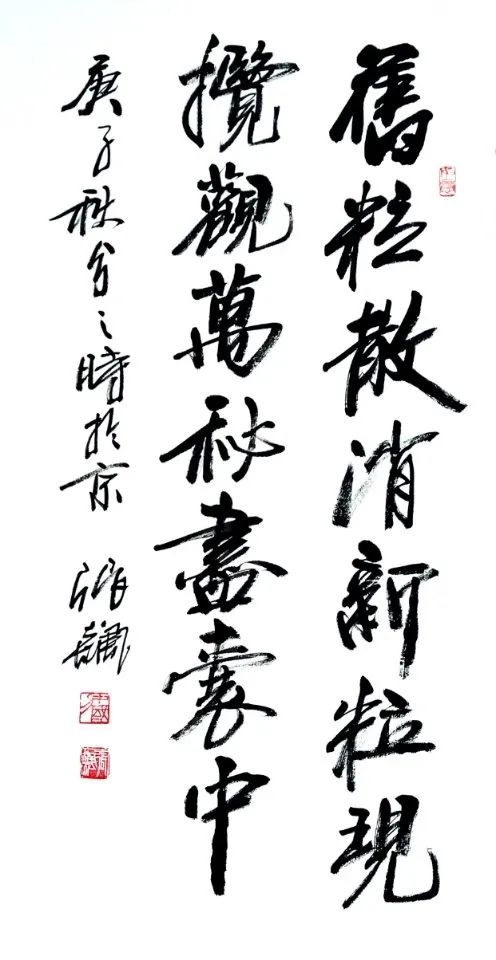 舊粒散消新粒現
攬觀萬秘盡囊中
庚子秋分之時於京